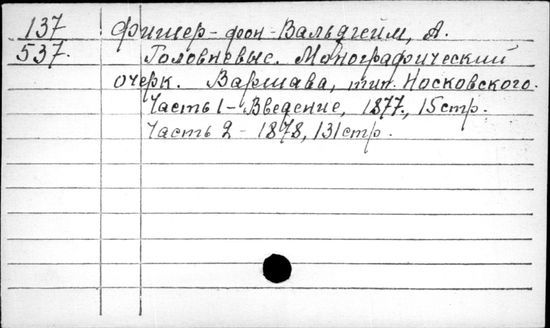 137 Фишер-фон-Вальдгейм, А.
537. Головневыс. Монографический
очерк. Варшава, тип. Носковского.
Часть 1 - Введение, 1877, 15 стр.
Часть 2 - 1878, 131 стр.